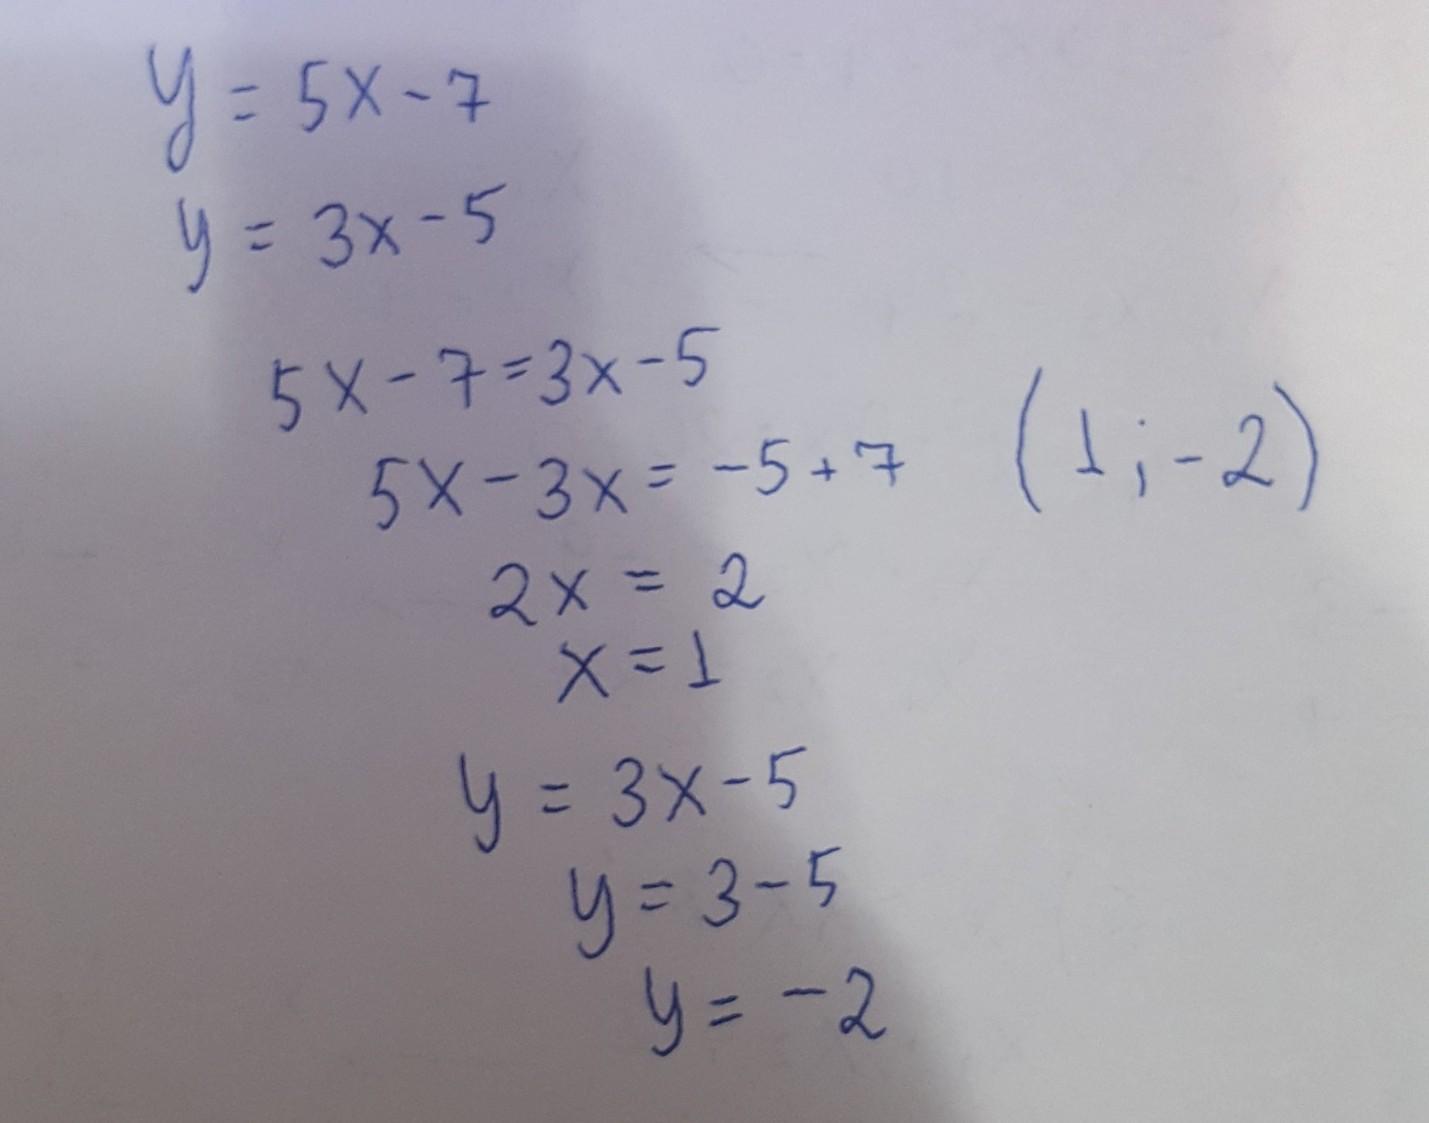 y = 5x - 7
y = 3x - 5
5x - 7 = 3x - 5
5x - 3x = -5 + 7
(1; -2)
2x = 2
x = 1
y = 3x - 5
y = 3 - 5
y = -2